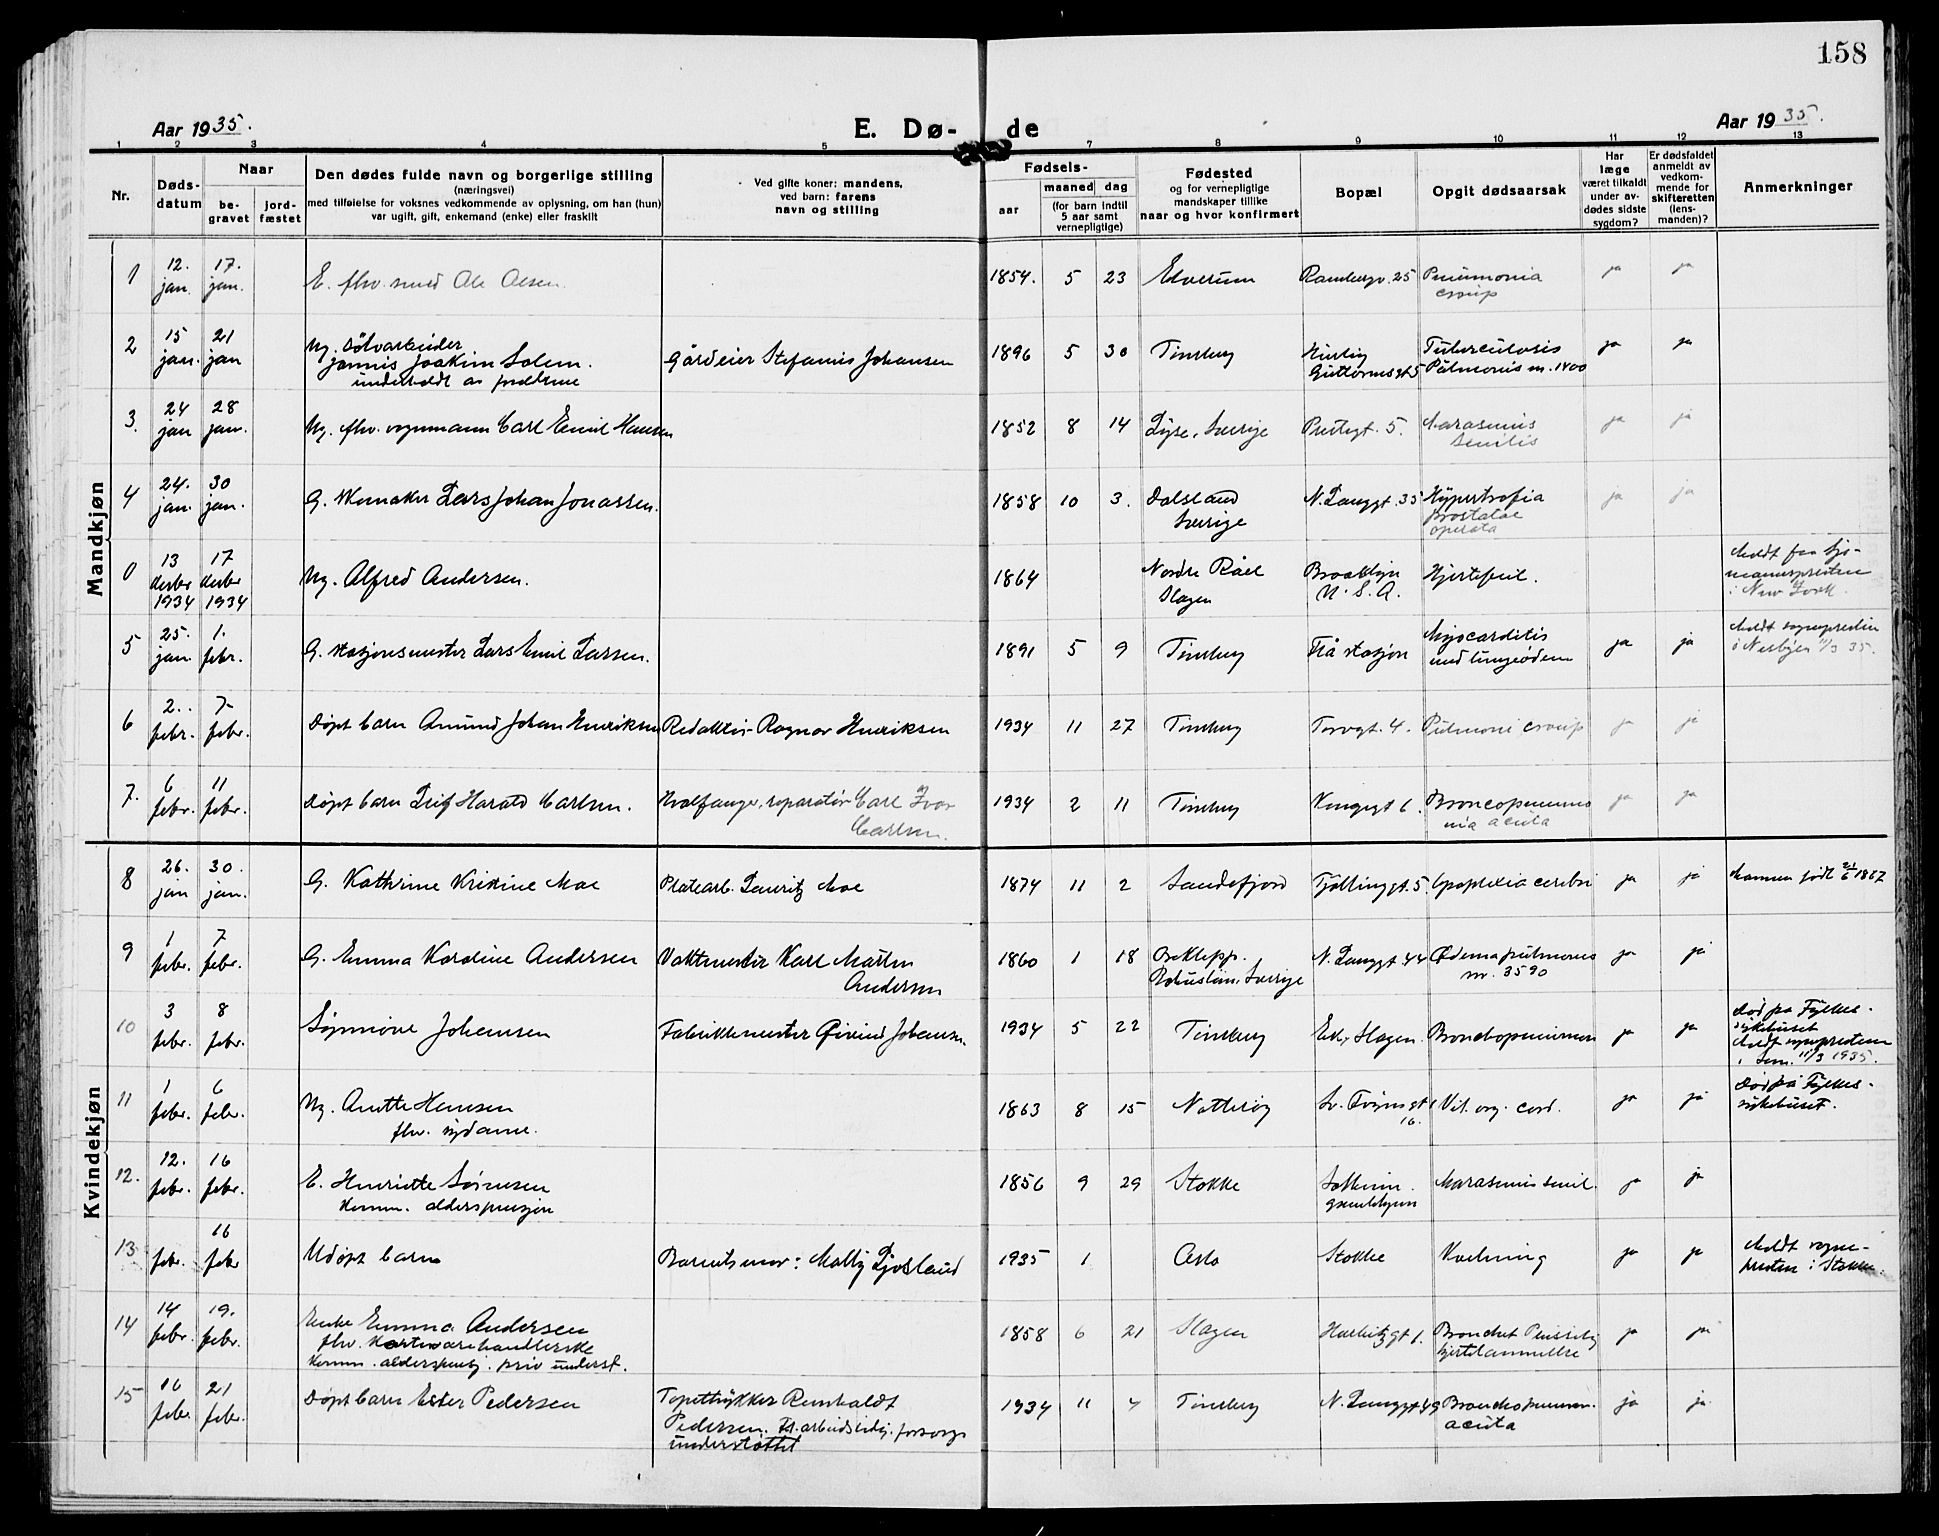 158
Aar 1935.
E. Dø- de
Aar 1935.
1 2 3 4 5 7 8 9 10 11 12 13
Nr.
Døds-
datum
Naar
be-
gravet
jord-
fæstet
Den dødes fulde navn og borgerlige stilling
(næringsvei)
med tilføielse for voksnes vedkommende av oplysning, om han (hun)
var ugift, gift, enkemand (enke) eller fraskilt
Ved gifte koner: mandens,
ved barn: farens
navn og stilling
Fødsels-
aar
maaned
dag
(for barn indtil
5 aar samt
vernepligtige)
Fødested
og for vernepligtige
mandskaper tillike
naar og hvor konfirmert
Bopæl
Opgit dødsaarsak
Har
læge
været tilkaldt
under av-
dødes sidste
sygdom?
Er dødsfaldet
anmeldt av
vedkom-
mende for
skifteretten
(lens-
manden)?
Anmerkninger
Mandkjøn
1 12. jan. 17. jan. E. fhv. smed Ole Olsen. 1854. 5 23 Elverum Rambergv. 25 Pneumonia ja ja
croup
2 15 jan. 21 jan Ug. sølvarbeider
Jonnis Joakim Solem. Gårdeier Stefanus Johansen 1896 5 30 Tønsberg Guttormsgt 5 Tuberculosis ja ja
underholdt av foreldrene Pulmonis m. 1400
3. 24 jan 28 jan. Ug. fhv. vognmann Carl Emil Hansen 1852 8 14 Lyse, Sverige Prestegt. 5. Marasmus ja ja
senilis
4 24. jan. 30 jan. G. skomaker Lars Johan Jonassen. 1858 10 3. Dalsland N. Langgt. 35 Hypertrofia ja ja
Sverige prostatae
operata
0 13 desbr 1934 17 desbr 1934 Ug. Alfred Andersen. 1864 Nordre Råel Brooklyn Hjertefeil. Meldt fra sjø-
Slagen U.S.A. mannspresten
i New York.
5 25. jan. 1. febr. G. stasjonsmester Lars Emil Larsen. 1891 5 9 Tønsberg Flå stasjon Myocarditis ja ja Meldt sognepresten
med lungeødem i Nesbyen 11/3 35.
6 2. febr. 7- febr. Døpt barn Amund Johan Henriksen Redaktør Ragnar Henriksen 1934 11 27 Tønsberg Torvgt. 4. Pulmoni croup ja ja
7. 6 febr. 11 febr. Døpt barn Leif Harald Carlsen. Hvalfanger, reparatør Carl Ivar 1934 2 11 Tønsberg Kongegt 6. Broncopneumo ja ja
Carlsen. nia acuta
Kvindekjøn
8 26. jan 30. jan. G. Kathrine Kristine Moe Platearb. Lauritz Moe 1874 11 2 Sandefjord Tjøllinggt. 5 Apoplexia cerebri ja ja Mannen født 21/6 1867
9 1 febr. 7 febr. G. Emma Karoline Andersen Vaktmester Karl Martin 1860 1 18 N. Langgt. 44 Ødema pulmones ja ja
Andersen Bohuslän, Sverige m. 3590
10 3 febr. 8 febr. Synnøve Johansen Fabrikkmester Øivind Johansen. 1934 5 22 Tønsberg Eik, Slagen. Bronchopneumon ja ja Død på Fylkes-
sykehuset
Meldt sognepresten
i Sem. 11/3 1935.
11 1 febr. 6 febr. Ug. Anette Hansen 1863 8 15 Nøtterøy Sv. Foynsgt Vit. org. cord. ja ja Død på Fylkes-
fhv. sydame. 16. sykehuset.
12. 12. febr. 16 febr. E. Henriette Sørensen 1856 9 29 Stokke Solheim Marasmus senil. ja ja
komm. alderspensjon gamlehjem
13 febr. 16 febr Udøpt barn Barnets mor: Molly Ljosland 1935 1 Oslo Stokke Kvelning ja ja Meldt sogne-
presten i Stokke.
14 14 febr. 19. febr. Enke Emma Andersen 1858 6 21 Slagen Halvitzgt 1. ja ja
fhv. kortevarehandlerske hjertelammelse
komm. alderspensj. priv underst.
15 16 febr. 21 febr. Døpt barn Ester Pedersen Tapettrykker Reinholdt 1934 11 4 Tønsberg N. Langgt 49 Bronchopneumon. ja ja
Pedersen. arbeidsledig. forsorgs acuta
understøttet